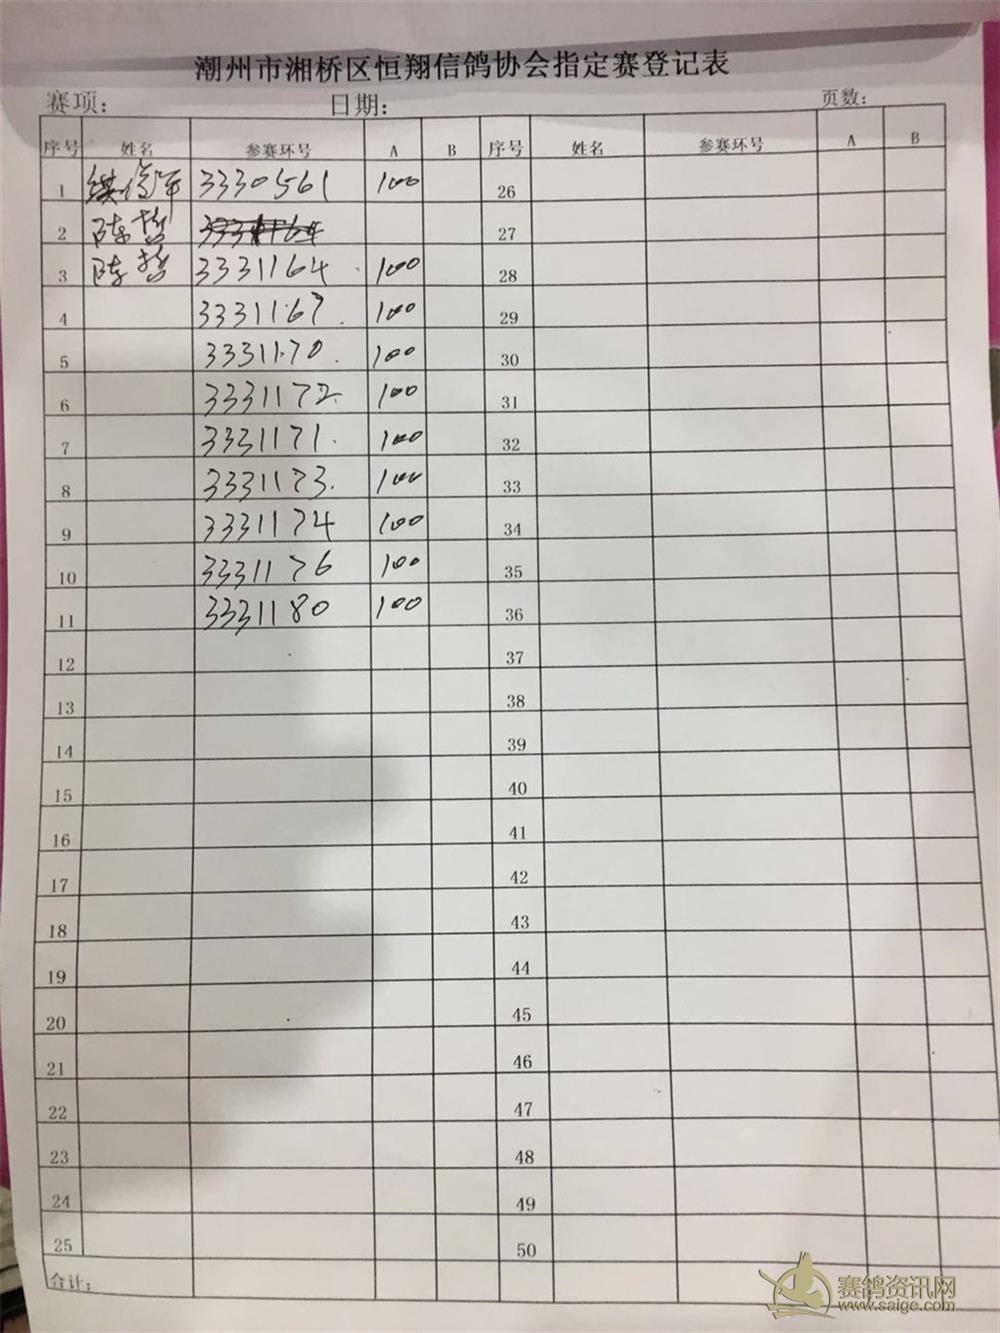 潮州市湘桥区恒翔信鸽协会指定赛登记表
赛项: 日期: 页数:
序号 姓名 参赛环号 A B 序号 姓名 参赛环号 A B
1 3330561 100 26
2 陈哲 3331164 27
3 陈哲 3331164 100 28
4 3331167 100 29
5 3331170 100 30
6 3331172 100 31
7 3331171 100 32
8 3331173 100 33
9 3331174 100 34
10 3331176 100 35
11 3331180 100 36
12 37
13 38
14 39
15 40
16 41
17 42
18 43
19 44
20 45
21 46
22 47
23 48
24 49
25 50
合计:
赛鸽资讯网
www.saige.com